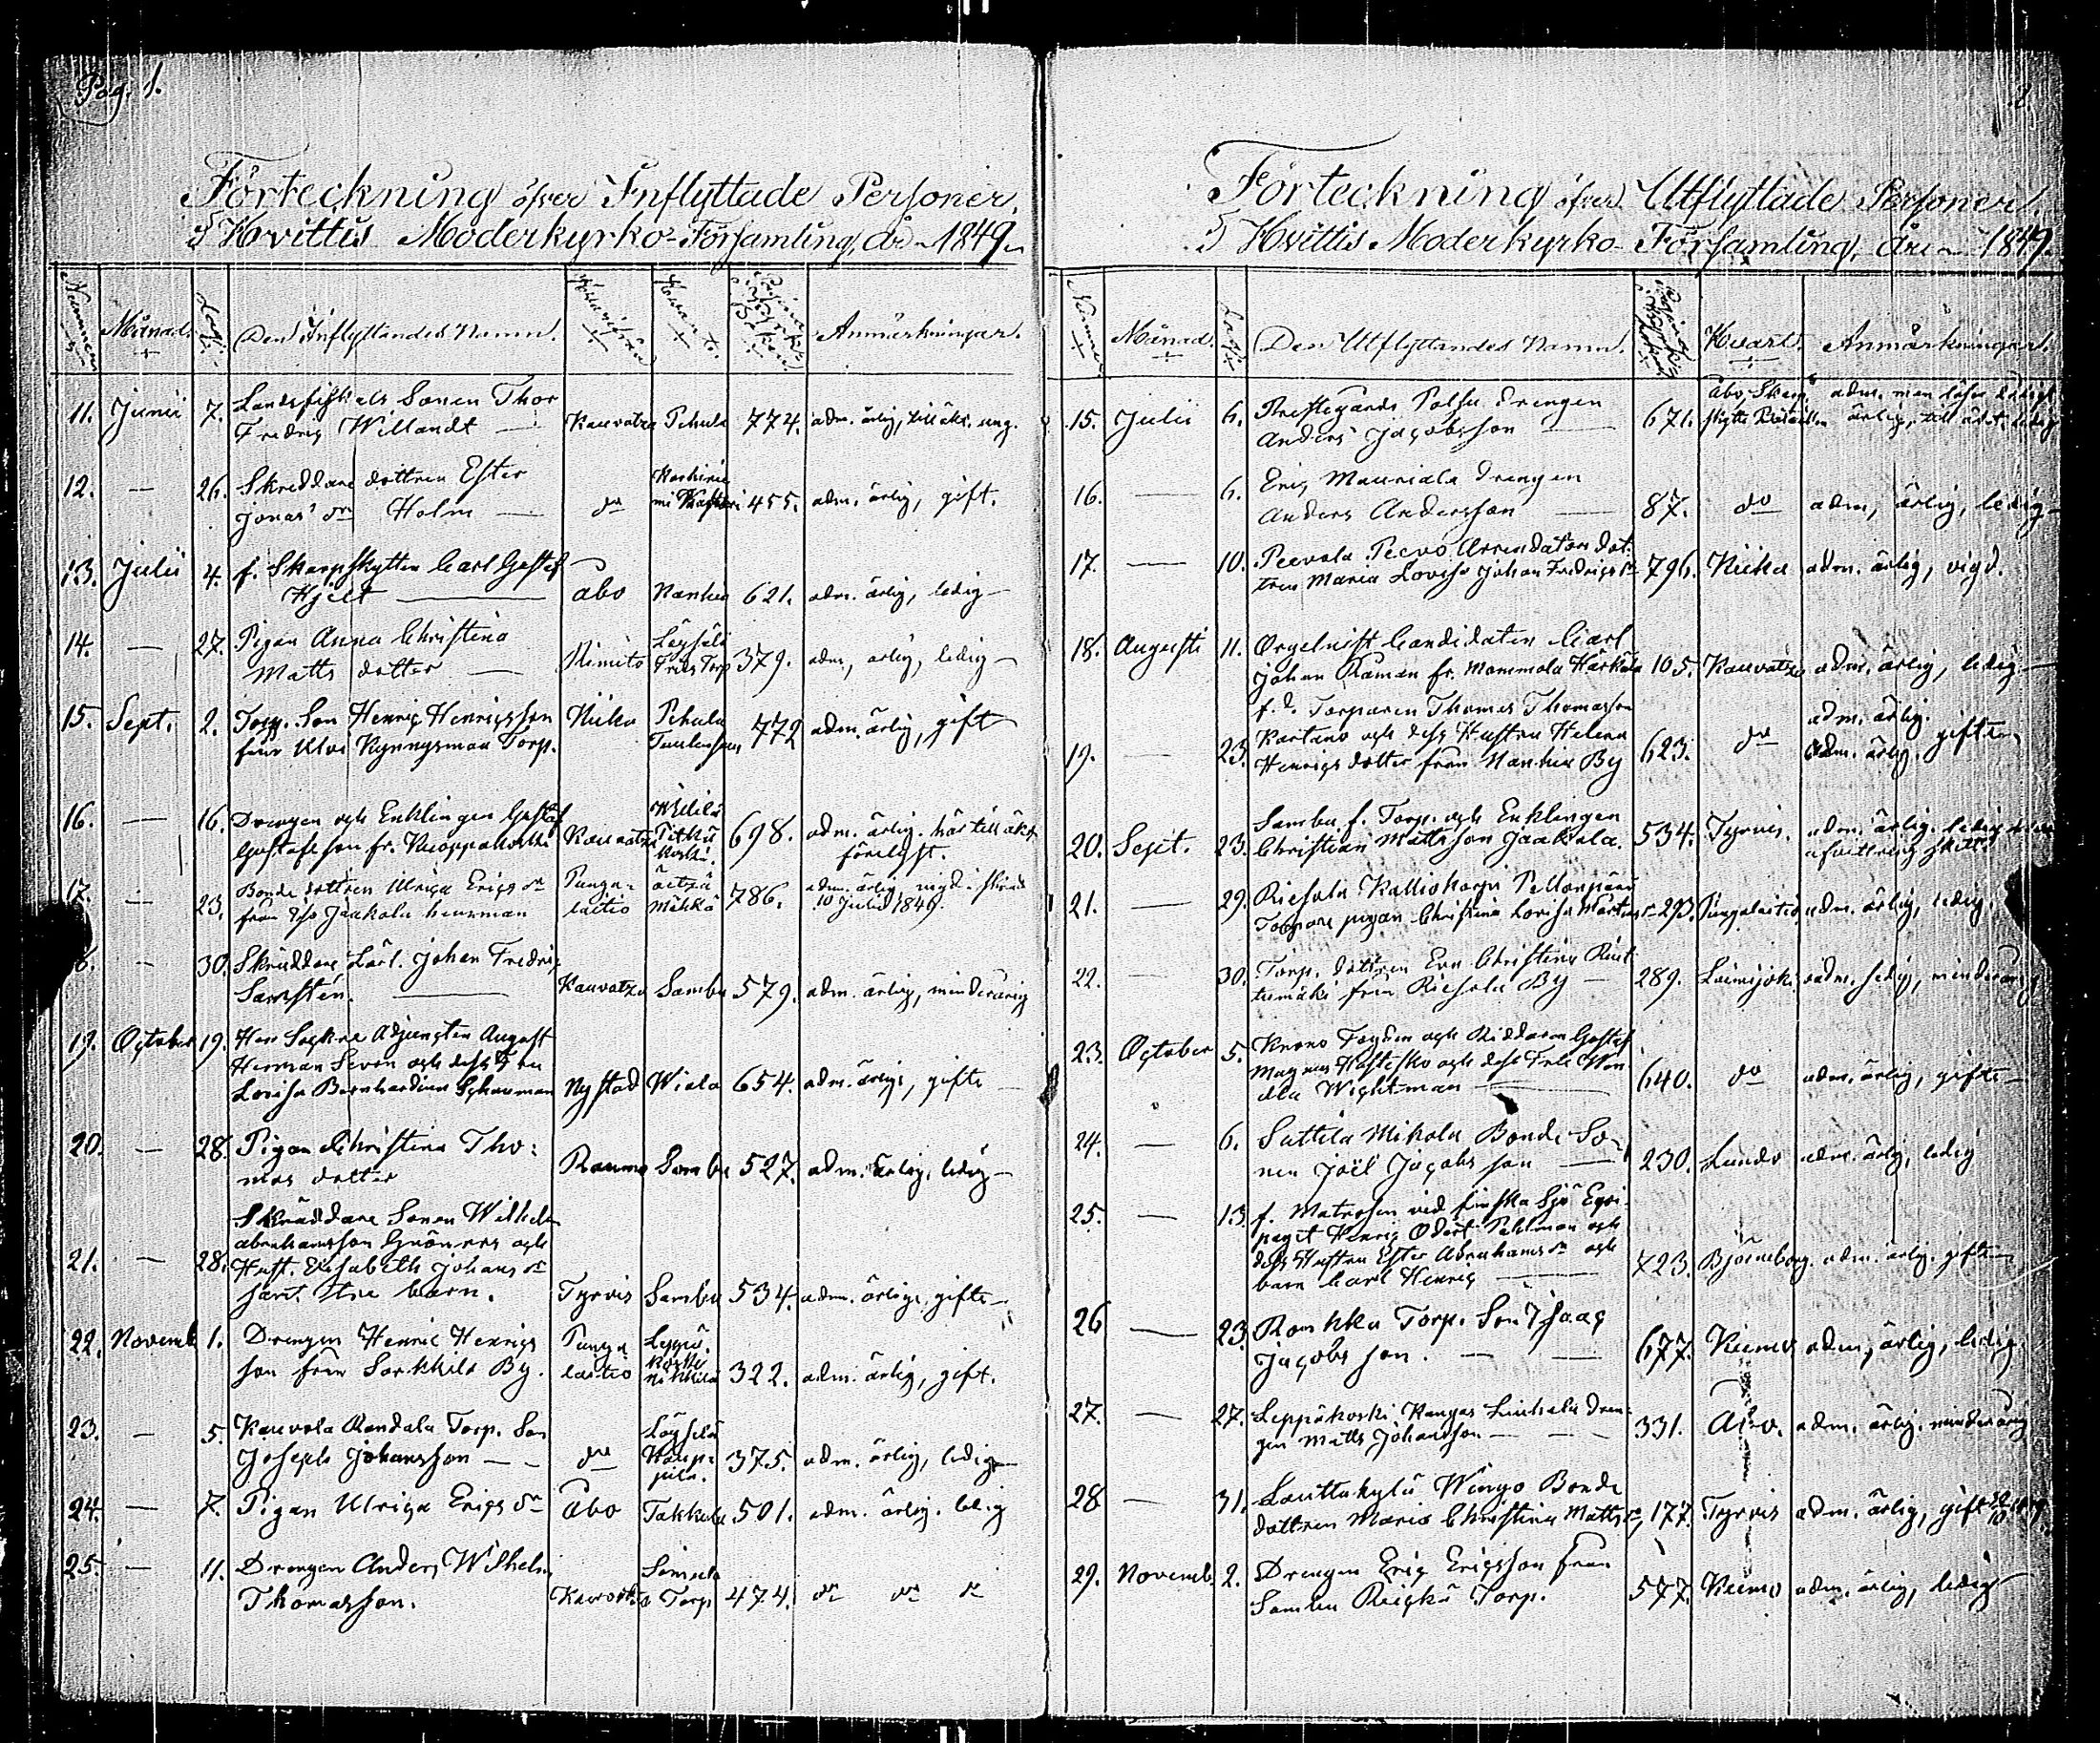 Pag. 1.
Förteckning öfver Inflyttade Personer
I Hvittis Moderkyrko-Församling, år 1849.
Nummer Månad. Dag. Den Inflyttandes Namn. Hvarifrån Hvart. Pagina i Kyrkoboken Anmärkningar.
11. Junii 7. Landsfiskals Sonen Thor
Fredric Willandt — Kauvatza Pehula 774. adm. ärlig, till äkt. ung.
12. — 26. Skreddare dottren Ester
Jonas dr Holm — do 455. adm. ärlig, gift.
13. Julii 4. f. Skarpskytten Carl Gustaf
Hjelt — Åbo Nanhia 621. adm. ärlig, ledig —
14. — 27. Pigan Anna Christina
Matts dotter — Kimito Löysälä Torp 379. adm, ärlig, ledig —
15. Sept. 2. Torp. Son Henric Henricsson
från Kynnysmaa Torp. Kiika Pehula 772 adm. ärlig, gift
16. — 16. Drengen och Enklingen Gustaf
Gustafsson fr. Kauvatza Pitkä koski. 698. adm. ärlig. här till äkt.
förelyst.
17. — 23. Bonde dottren Ulrica Erics dr
från Jaakola Punga-laitio mäkkä 786. adm. ärlig, vigd
10 Julii 1849.
8. — 30. Skräddare Lärl. Johan Fredric
Samstén. — Kauvatza Sambu 579. adm. ärlig, minderårig
19. October 19. Herr Sockne Adjuncten August
Herman Leven och dess Fru
Lovisa Bernhardina Schauman Nystad Wiala 654. adm. ärliga, gifte —
20. — 28. Pigan Christina Tho-
mas dotter Raumo Sambu 527. adm. ärlig, ledig —
21. — 28. Skräddare Sonen Wilhelm
Abrahamsson Grönroos och
Hust. Elisabeth Johans dr
samt tre barn. Tyrvis Sambu 534. adm. ärliga, gifte —
22. Novemb 1. Drengen Henric Henrics
son från Sarkkila By. Punga laitio Leppä-koski Nikkilä 322. adm. ärlig, gift.
23. — 5. Kauvola Torp. Son
Joseph Johansson — — do Löysälä 375. adm. ärlig, ledig —
24. — 7. Pigan Ulrica Erics dr Åbo Takkula 501. adm. ärlig. ledig
25. — 11. Drengen Anders Wilhelm
Thomasson. Kauvatza Torp 474. do do do
2.
Förteckning öfver Utflyttade Personer
I Hvittis Moderkyrko-Församling, åre 1849.
Nummer Månad. Dag Den Utflyttandes Namn. Pagina i Kyrkoboken Hvart. Anmärkningar.
15. Julii 6. Prestegårds drengen
Anders Jacobsson — 671. Åbo Skarp adm. men
ärlig, till äkt. ledig
16. — 6. Eric Mauriala drengen
Anders Andersson — 87. do adm, ärlig, ledig —
17. — 10. Peevola Arrendators dot-
tren Maria Lovisa Johan Fredrics dr 796. Kiika adm. ärlig, vigd.
18. Augusti 11. Orgelnist Candidaten Carl
Johan Raman fr. Mommola Härkälä 105. Kauvatza adm. ärlig, ledig —
19. — 23. f. d. Torparen Thomas Thomasson
Kartano och dess Hustru Helena
Henrics dotter från Nanhia By 623. do adm. ärlig. gifte
adm. ärlig.
20. Sept. 23. Sambu f. Torp. och Enklingen
Christian Mattsson Jaakola. 534. Tyrvis. adm. ärlig. ledig
afvittring skett
21. — 29. Riesola Kalliokorpi
Torpare pigan Christina Lovisa Mårtens dr 293. Pungalaitio adm. ärlig, ledig.
22. — 30. Torp. dottren Eva Christina
från Riesola By — 289. Loimijoki adm. ledig, minderårig
23. October 5. Krono Fogden och Riddaren Gustaf
Magnus Hästesko och dess Fru Wen-
dla Wichtman — 640. do adm. ärlig, gifte —
24. — 6. Suttila Mikola Bonde So-
nen Joël Jacobsson — 230. Lundo adm. ärlig, ledig
25. — 13. f. Matrosen vid finska Sjö Equi-
paget Henric Pehlman och
dess Hustru Ester Abrahams dr och
barn Carl Henric — 423. Björneborg. adm. ärlig. gifte
26 — 23. Ronkka Torp. Son Isaac
Jacobsson. — — 677. Kumo adm, ärlig, ledig.
27. — 27. Leppäkoski Kangas dren-
gen Matts Johansson — — 331. Åbo. adm. ärlig. minderårig
28 — 31. Lauttakylä Wingo Bonde
dottren Maria Christina Matts dr 177. Tyrvis adm. ärlig, gift
29. Novemb. 2. Drengen Eric Ericsson från
Sambu Torp. 577. Kumo adm. ärlig, ledig